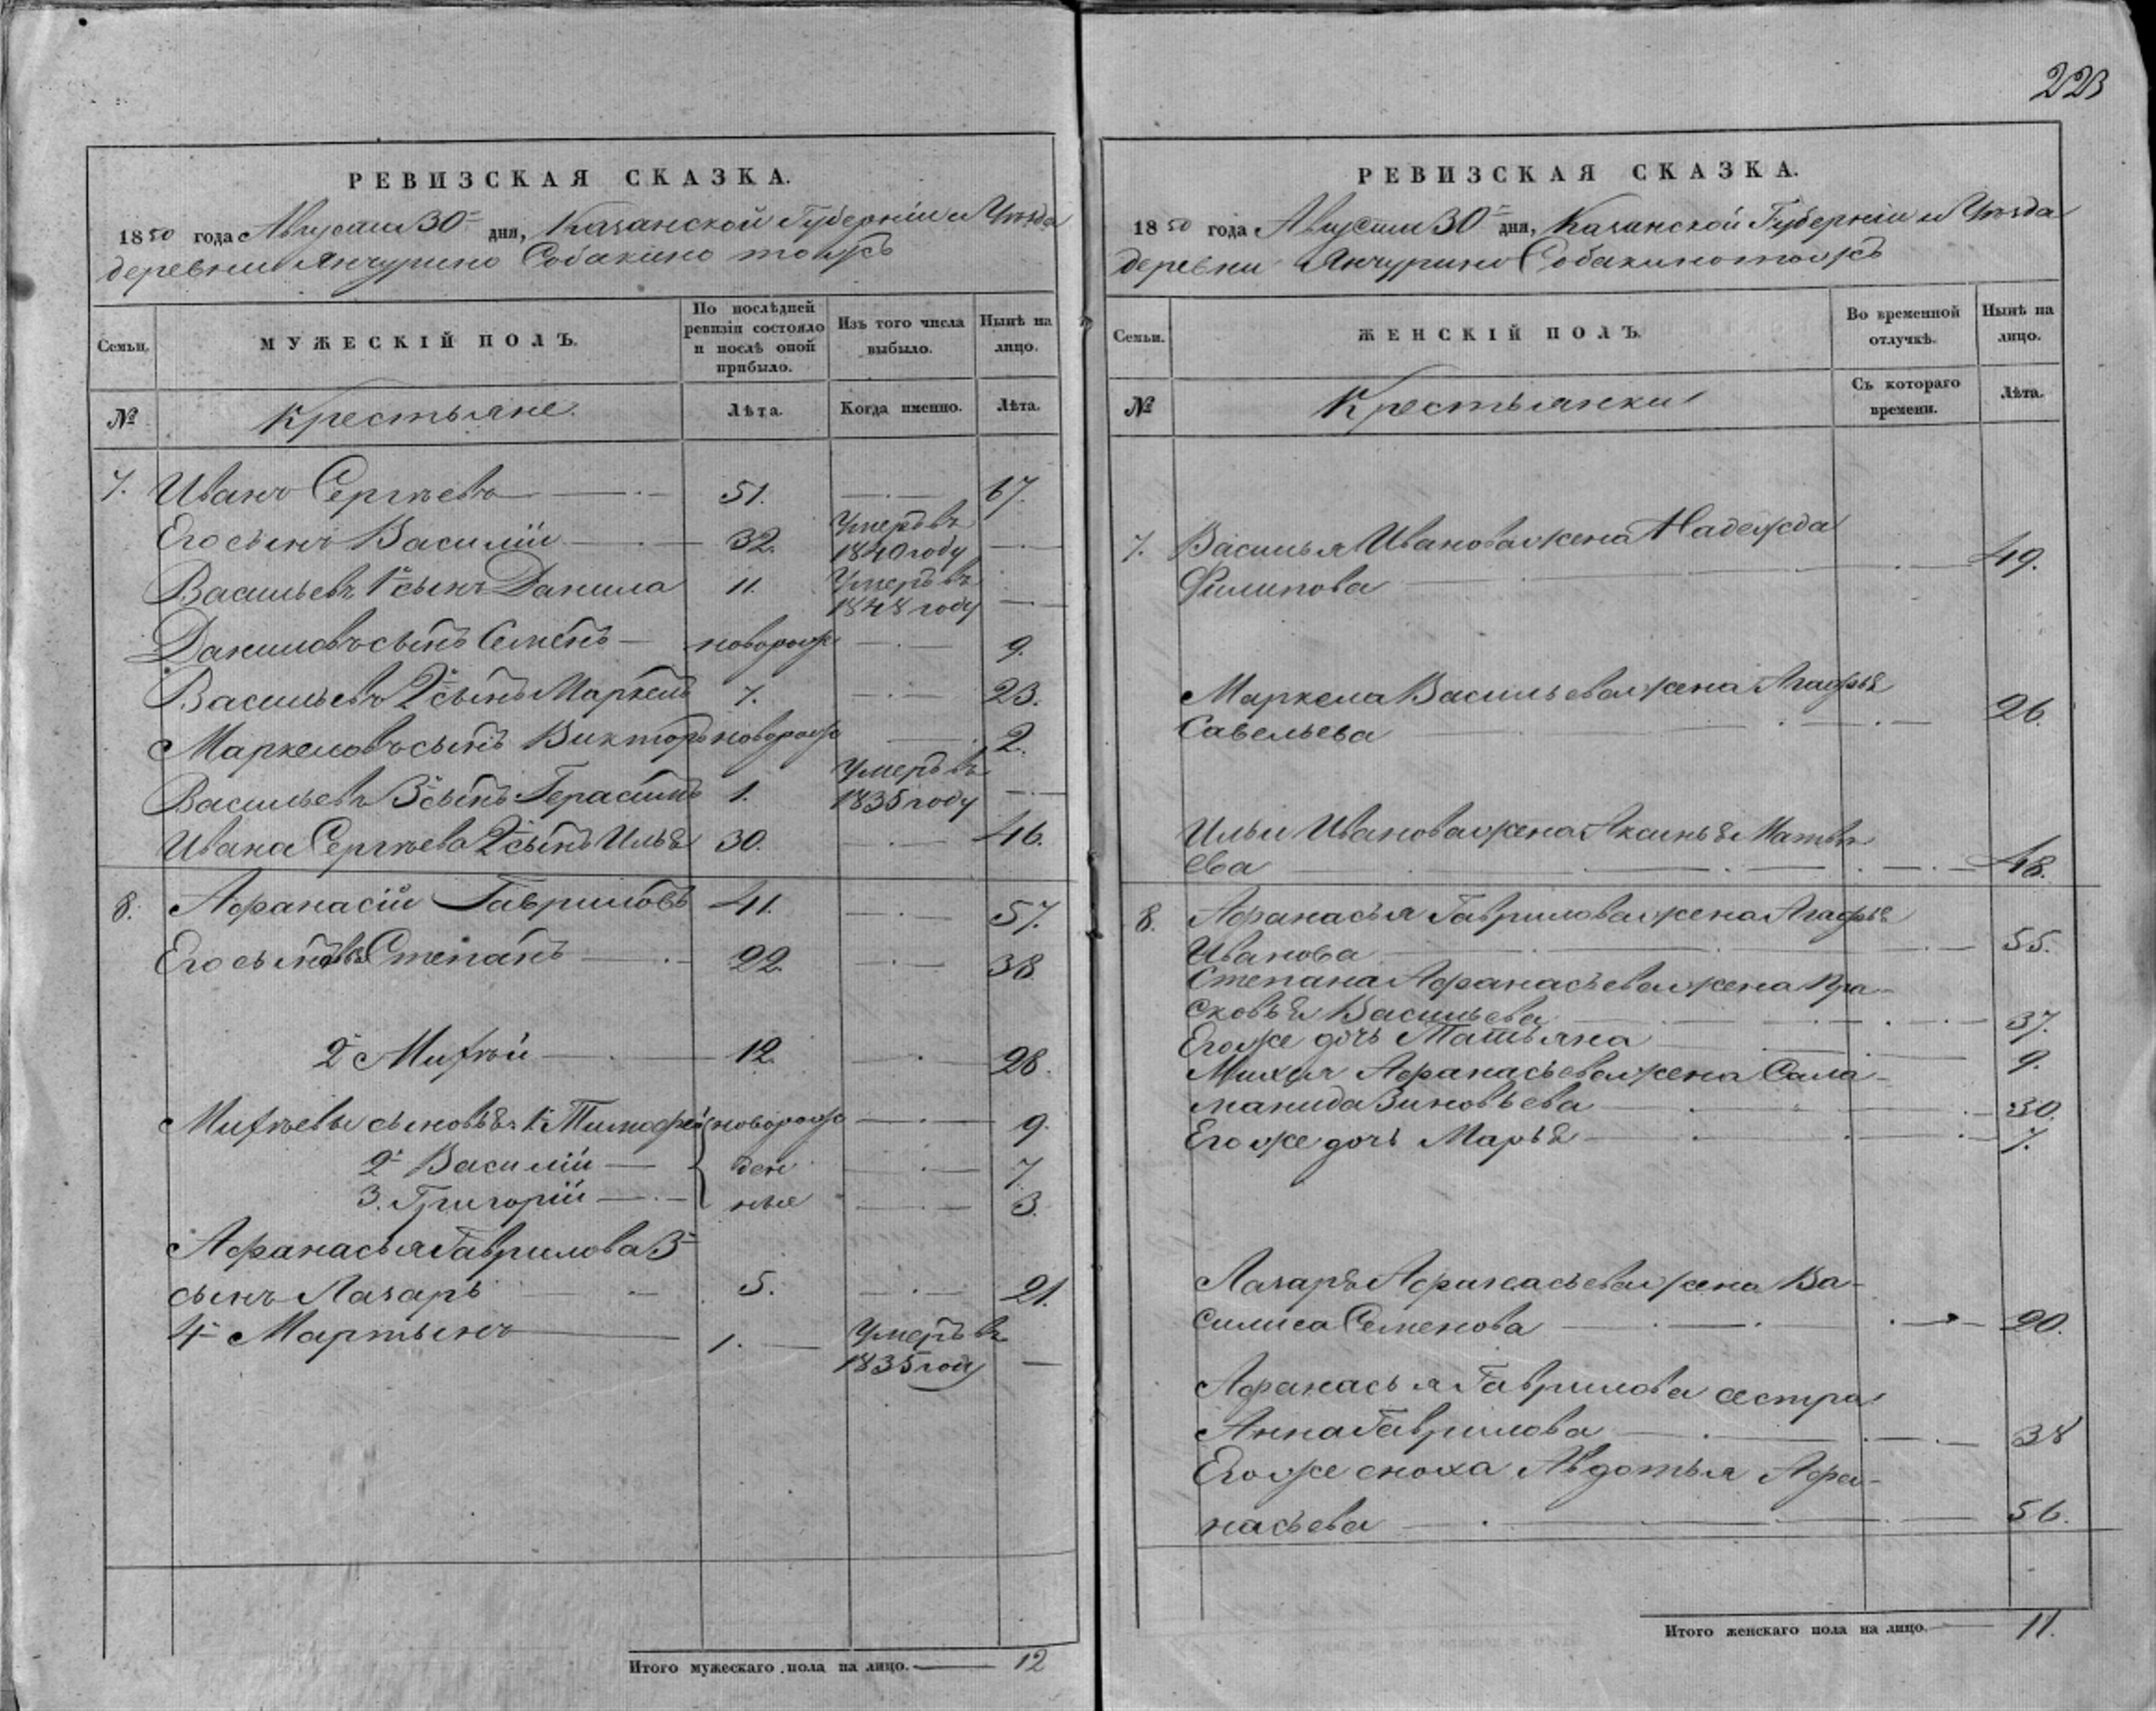 223
РЕВИЗСКАЯ СКАЗКА.
1850 года Августа 30 дня, Казанской Губерніи и Уѣзда
деревни Янчурино Собакино тожъ
Семьи.
МУЖЕСКІЙ ПОЛЪ.
По послѣдней ревизіи состояло и послѣ оной прибыло.
Изъ того числа выбыло.
Нынѣ на лицо.
№
Крестьяне.
Лѣта.
Когда именно.
Лѣта.
7. Иванъ Сергѣевъ 51. 67.
Его сынъ Василій 32. Умеръ въ 1840 году
Васильевъ 1й сынъ Данила 11. Умеръ въ 1848 году
Даниловъ сынъ Семенъ новорож 9.
Васильевъ 2й сынъ Маркелъ 7. 23.
Маркеловъ сынъ Викторъ новорож 2.
Васильевъ 3й сынъ Герасимъ 1. Умеръ въ 1835 году
Ивана Сергѣева 2й сынъ Илья 30. 46.
8. Афанасій Гавриловъ 41. 57.
Его сыновья Степанъ 22. 38.
2й Михѣй 12. 28.
Михѣевы сыновья 1й Тимофей новорож 9.
2й Василій ден 7.
3. Григорій ные 3.
Афанасья Гаврилова 3й
сынъ Лазарь 5. 21.
4й Мартынъ 1. Умеръ въ
1835 году
Итого мужескаго пола на лицо. 12
РЕВИЗСКАЯ СКАЗКА.
1850 года Августа 30 дня, Казанской Губерніи и Уѣзда
деревни Янчурино Собакино тожъ
Семьи.
ЖЕНСКІЙ ПОЛЪ.
Во временной отлучкѣ.
Нынѣ на лицо.
№
Крестьянки
Съ котораго времени.
Лѣта.
7. Василья Иванова жена Надежда
Филипова 49.
Маркела Васильева жена Агафья
Савельева 26.
Ильи Иванова жена Аксинья Матвѣ
ева 48.
8. Афанасья Гаврилова жена Агафья
Иванова 55.
Степана Афанасьева жена Пра-
сковья Васильева 37.
Егоже дочь Татьяна 9.
Михея Афанасьева жена Сала-
манида Зиновьева 30.
Егоже дочь Марья 7.
Лазаря Афанасьева жена Ва-
силиса Семенова 20.
Афанасья Гаврилова сестра
Анна Гаврилова 38
Егоже сноха Авдотья Афа-
насьева 56.
Итого женскаго пола на лицо. 11.